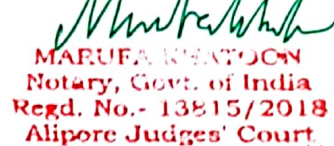 MARUFA KHATOON
Notary, Govt. of India
Regd. No.- 13815/2018
Alipore Judges' Court